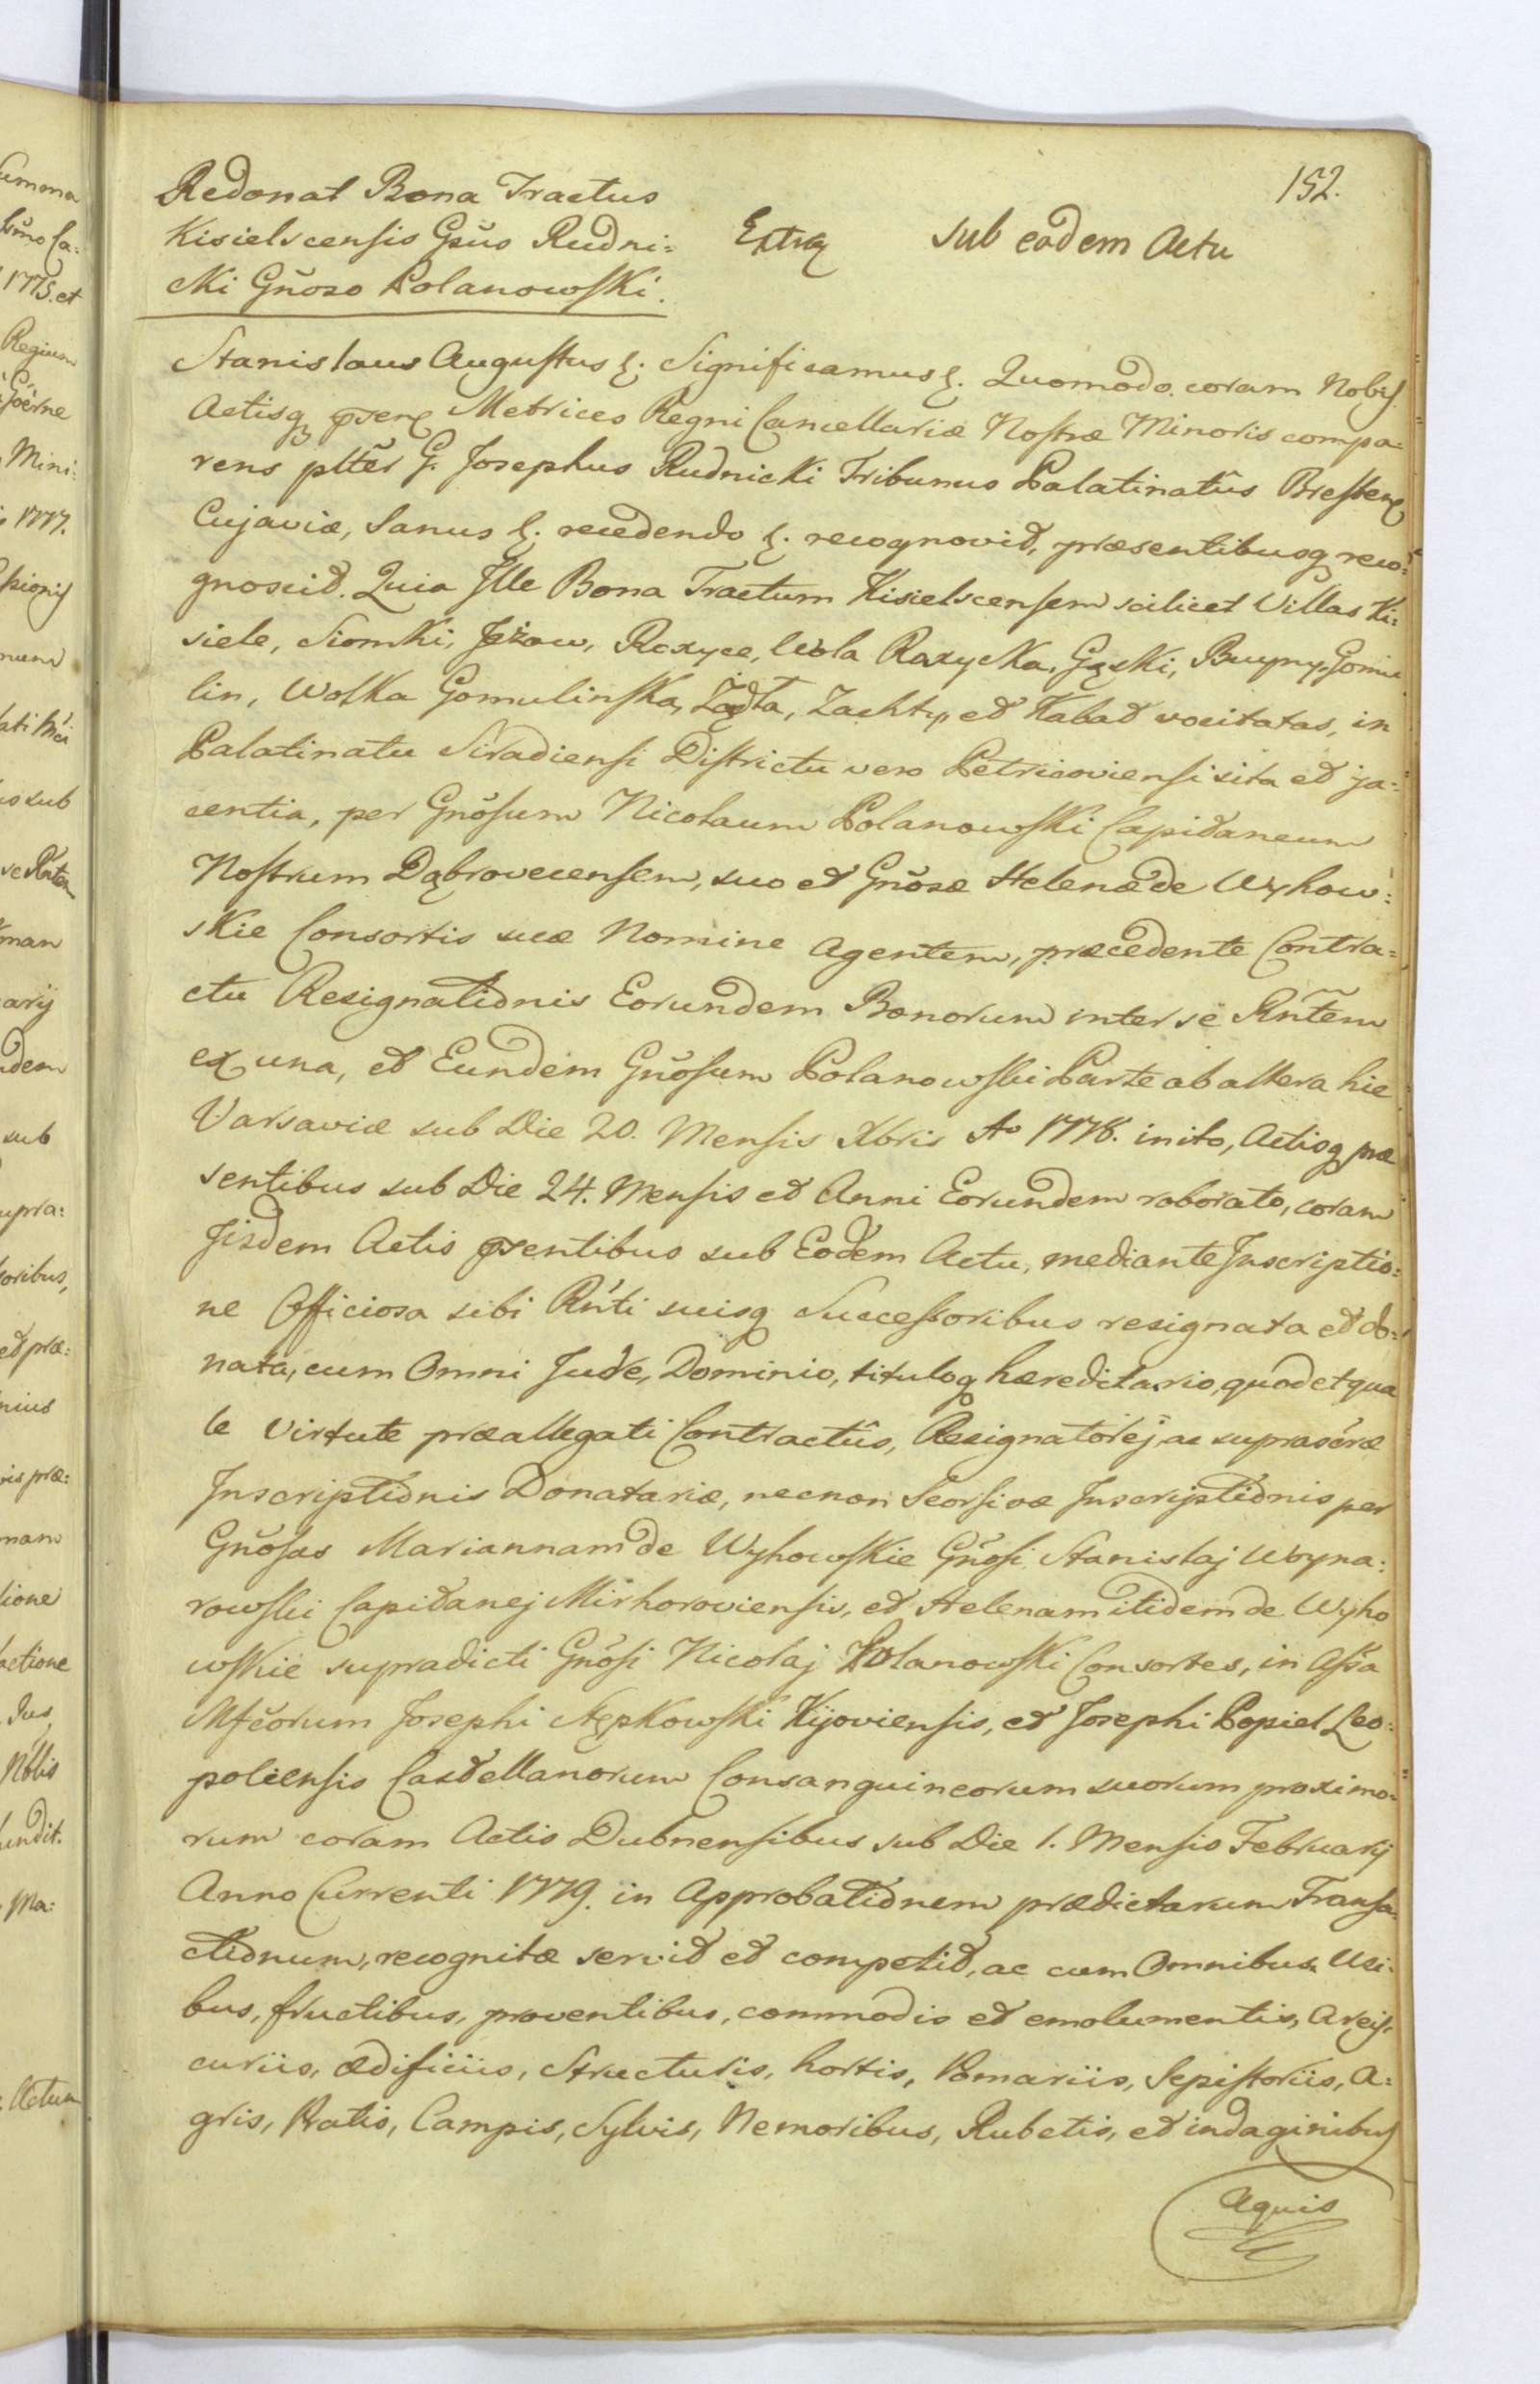 152.
Redonat Bona Tractus
Kisielscensis Gsus Rudni=
cki Gñoso Polanowski.
Extra sub eodem Actu
Stanislaus Augustus &. Significamus &. Quomodo coram Nobis
Actisq psens Metrices Regni Cancellariæ Nostræ Minoris compa=
rens plter G. Josephus Rudnicki Tribunus Palatinatûs Brestens
Cujaviæ, Sanus &. recedendo &. recognovit, præsentibusq reco=
gnoscit. Quia Ille Bona Tractum Kisielscensem scilicet Villas Ki=
siele, Siomki, Jeżow, Roxyce, Wola Raxycka, Gąski, Buyny, Gomu
lin, Wolka Gomulinska, Żądła, Zachty, et Kabat vocitatas, in
Palatinatu Siradiensi Districtu vero Petricoviensi sita et ja=
centia, per Gnosum Nicolaum Polanowski Capitaneum
Nostrum Dąbrovecensem, suo et Gnosæ Helenæ de Wyhow=
skie Consortis suæ Nomine Agentem, præcedente Contra=
ctu Resignationis Eorundem Bonorum inter se Rñtem
ex una, et Eundem Gnosum Polanowski Parte ab altera hic
Varsaviæ sub Die 20. Mensis Xbris Ao 1778. inito, Actisq præ
sentibus sub Die 24. Mensis et Anni Eorundem roborato, coram
Jisdem Actis psentibus sub Eodem Actu, mediante Inscriptio=
ne Officiosa sibi Rnti suisq Successoribus resignata et do=
nata, cum Omni Jure, Dominio, tituloq hæreditario, quod et qua
le Virtute præallegati Contractûs, Resignatorij ac suprascræ
Inscriptionis Donatariæ, necnon Seorsivæ Inscriptionis per
Gnosas Mariannam de Wyhowskie Gnosi Stanislaj Woyna=
rowski Capitanej Mirhoroviensis, et Helenam itidem de Wyho
wskie supradicti Gnosi Nicolaj Polanowski Consortes, in Assa
Mfcorum Josephi Stępkowski Kijoviensis, et Josephi Popiel Leo=
poliensis Castellanorum Consanguineorum suorum proximo=
rum coram Actis Dubnensibus sub Die 1. Mensis Februarij
Anno Currenti 1779. in Approbationem prædictarum Transa=
ctionum, recognitæ servit et competit, ac cum Omnibus Usi=
bus, fructibus, proventibus, commodis et emolumentis, Areis,
curiis, ædificiis, Structuris, hortis, Pomariis, Sepistoriis, A=
gris, Pratis, Campis, Sylvis, Nemoribus, Rubetis, et indaginibus
Aquis